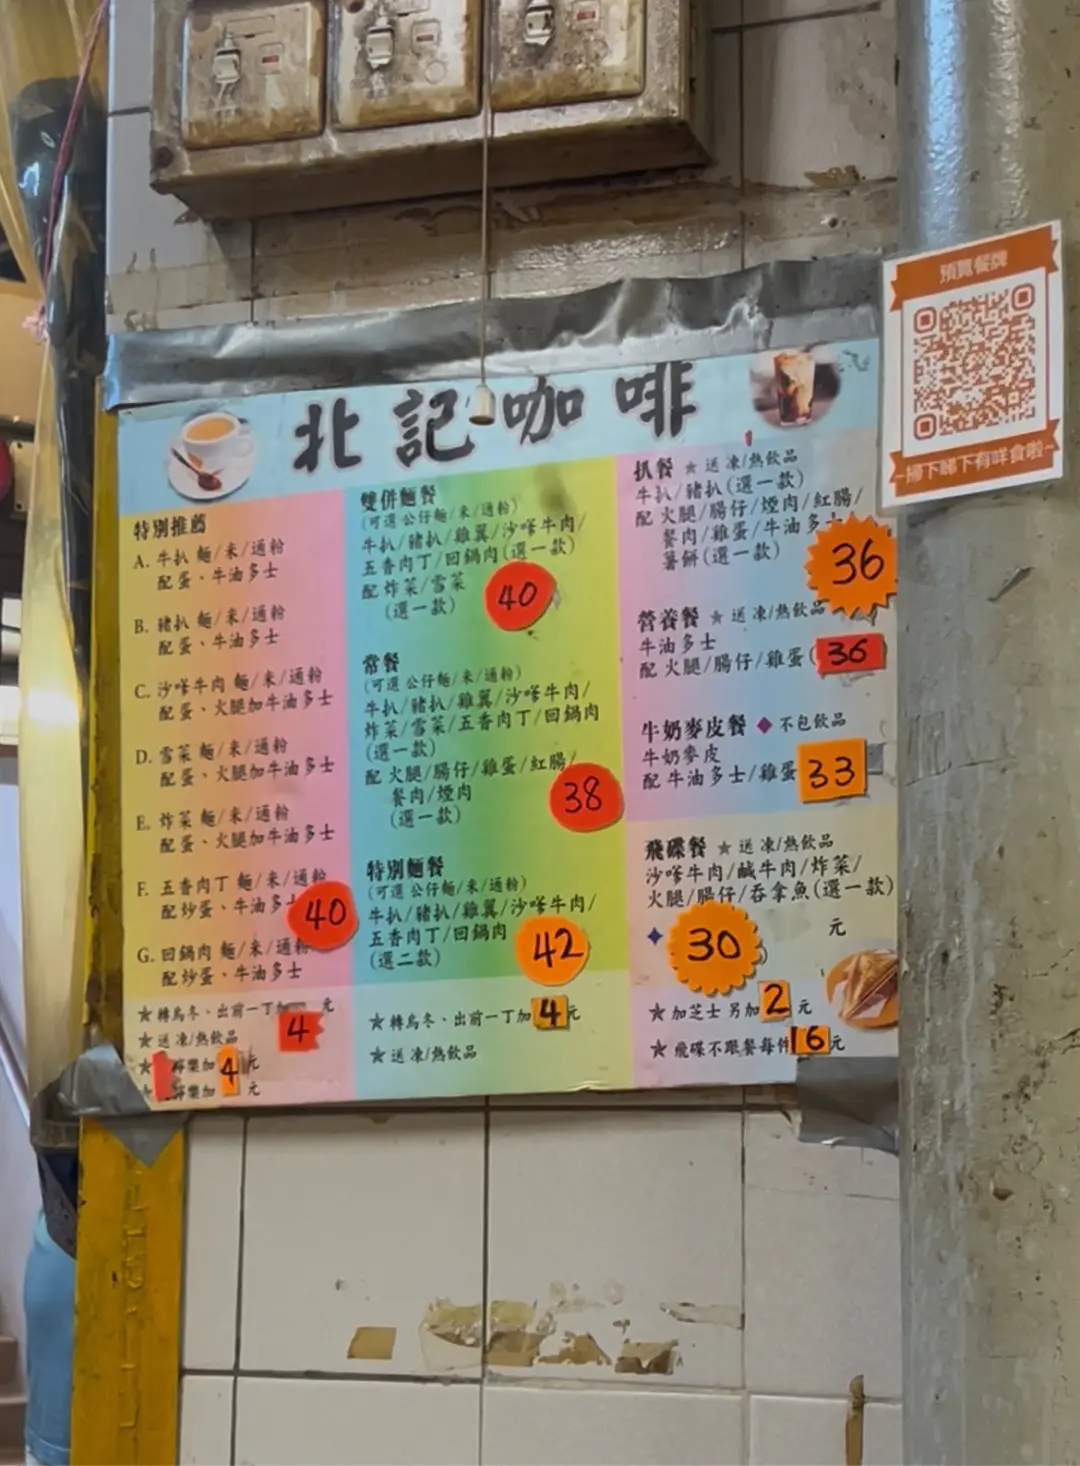 預覽餐牌
掃下睇下有咩食啦~
北記咖啡
特別推薦
A. 牛扒 麵/米/通粉
配蛋、牛油多士
B. 豬扒 麵/米/通粉
配蛋、牛油多士
C. 沙嗲牛肉 麵/米/通粉
配蛋、火腿加牛油多士
D. 雪菜 麵/米/通粉
配蛋、火腿加牛油多士
E. 炸菜 麵/米/通粉
配蛋、火腿加牛油多士
F. 五香肉丁 麵/米/通粉
配炒蛋、牛油多
40
G. 回鍋肉 麵/米/通粉
配炒蛋、牛油多士
★轉烏冬、出前一丁加 元
4
★送 凍/熱飲品
★ 樂加 4 元
★ 樂加 元
雙併麵餐
(可選 公仔麵/米/通粉)
牛扒/豬扒/雞翼/沙嗲牛肉/
五香肉丁/回鍋肉(選一款)
配 炸菜/雪菜
(選一款)
40
常餐
(可選 公仔麵/米/通粉)
牛扒/豬扒/雞翼/沙嗲牛肉/
炸菜/雪菜/五香肉丁/回鍋肉
(選一款)
配 火腿/腸仔/雞蛋/紅腸/
餐肉/煙肉
(選一款)
38
特別麵餐
(可選 公仔麵/米/通粉)
牛扒/豬扒/雞翼/沙嗲牛肉/
五香肉丁/回鍋肉
(選二款)
42
★轉烏冬、出前一丁加 4 元
★送 凍/熱飲品
扒餐 ★ 送 凍/熱飲品
牛扒/豬扒(選一款)
配 火腿/腸仔/煙肉/紅腸/
餐肉/雞蛋/牛油多士/
薯餅(選一款)
36
營養餐 ★ 送 凍/熱飲品
牛油多士
配 火腿/腸仔/雞蛋(
36
牛奶麥皮餐 ◆ 不包飲品
牛奶麥皮
配 牛油多士/雞蛋
33
飛碟餐 ★ 送 凍/熱飲品
沙嗲牛肉/鹹牛肉/炸菜/
火腿/腸仔/吞拿魚(選一款)
30 元
★ 加芝士 另加 2 元
★ 飛碟不跟餐每件 16 元